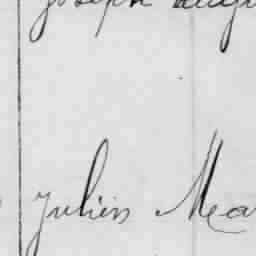 Joseph
Julien Ma